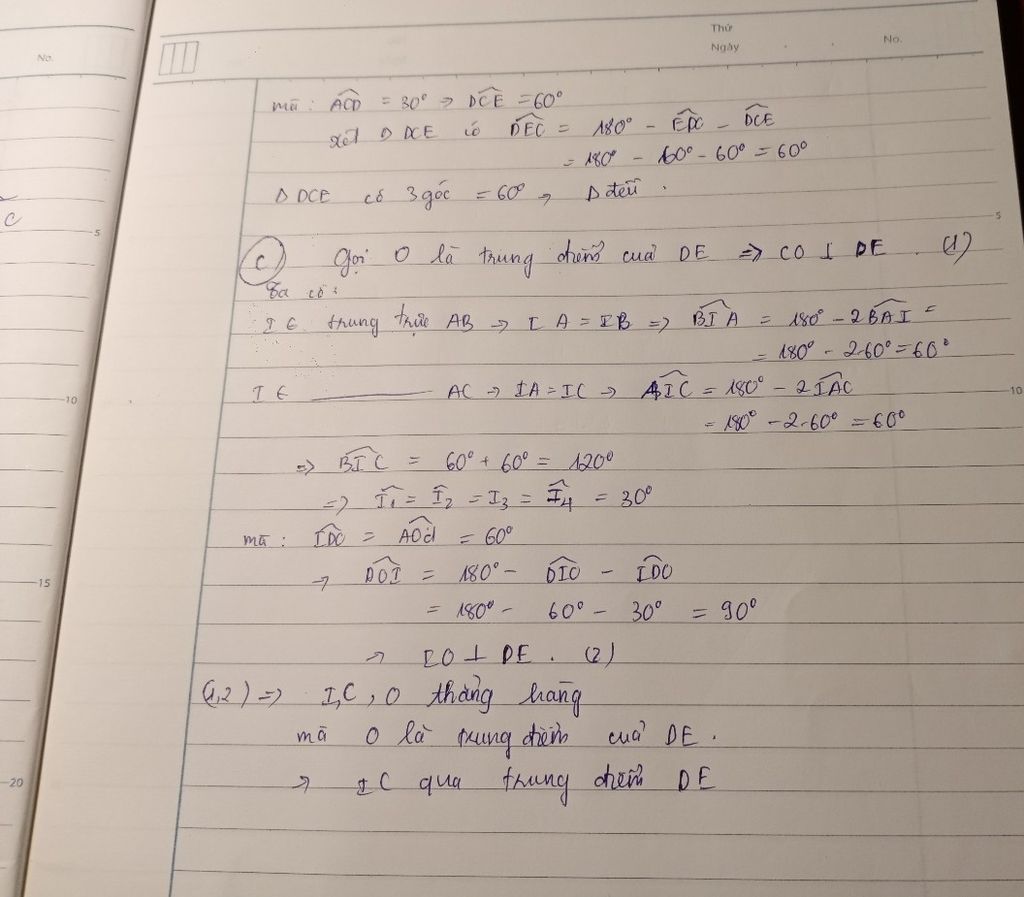 No.
Thứ
Ngày
No.
mà : ACD = 30° => DCE = 60°
xét Δ DCE có DEC = 180° - EDC - DCE
= 180° - 60° - 60° = 60°
Δ DCE có 3 góc = 60° → Δ đều .
C
5
5
c Gọi O là trung điểm của DE => CO ⊥ DE . (1)
Ta có :
I ∈ trung trực AB → IA = IB => BIA = 180° - 2BAI =
= 180° - 2.60° = 60°
I ∈ ——— AC → IA = IC → AIC = 180° - 2IAC
= 180° - 2.60° = 60°
10
10
=> BIC = 60° + 60° = 120°
=> I1 = I2 = I3 = I4 = 30°
mà : IDO = AOd = 60°
→ DOI = 180° - DIO - IDO
15
= 180° - 60° - 30° = 90°
→ IO ⊥ DE . (2)
(1,2) => I,C,O thẳng hàng
mà O là trung điểm của DE .
→ IC qua trung điểm DE
20